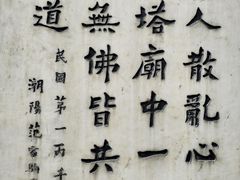 人散亂心
塔廟中一
無佛皆共
道
民國第一丙午
潮陽范